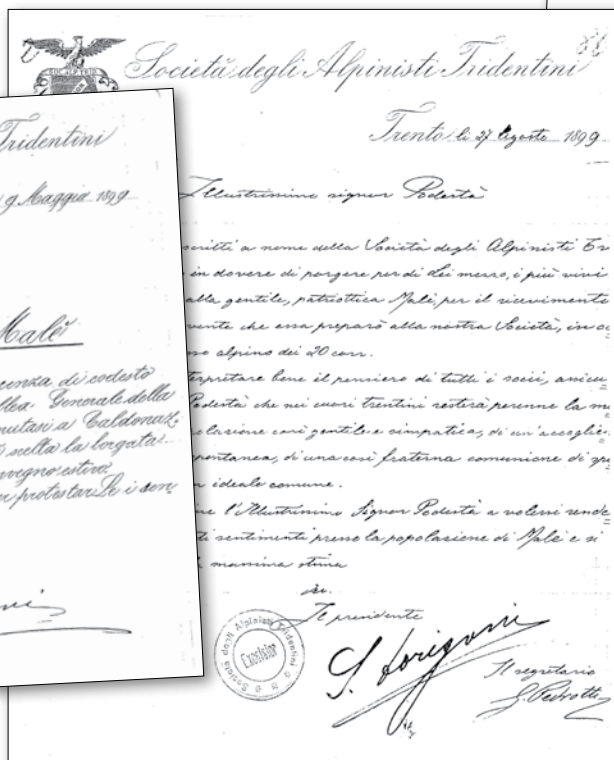 Società degli Alpinisti Tridentini
Trento li 27 Agosto 1899
Illustrissimo signor Podestà
scritti a nome della Società degli Alpinisti Tr
in dovere di porgere per di Lei mezzo, i più vivi
alla gentile, patriottica Malè, per il ricevimento
che essa preparò alla nostra Società, in
alpino dei 20 corr.
terpretare bene il pensiero di tutti i socii,
Podestà che nei cuori trentini resterà perenne la me
così gentile e simpatica, di un'accoglien
pontanea, di una così fraterna comunione di
ideale comune.
l'Illustrissimo Signor Podestà a volersi rende
sentimenti presso la popolazione di Malè e si
massima stima
Il presidente
Il segretario
Società degli Alpinisti Tridentini
Excelsior
Tridentini
9 Maggio 1899
Malè
di codesto
Generale della
a Caldonaz
scelta la borgata
nvegno estivo
protestarLe i sen